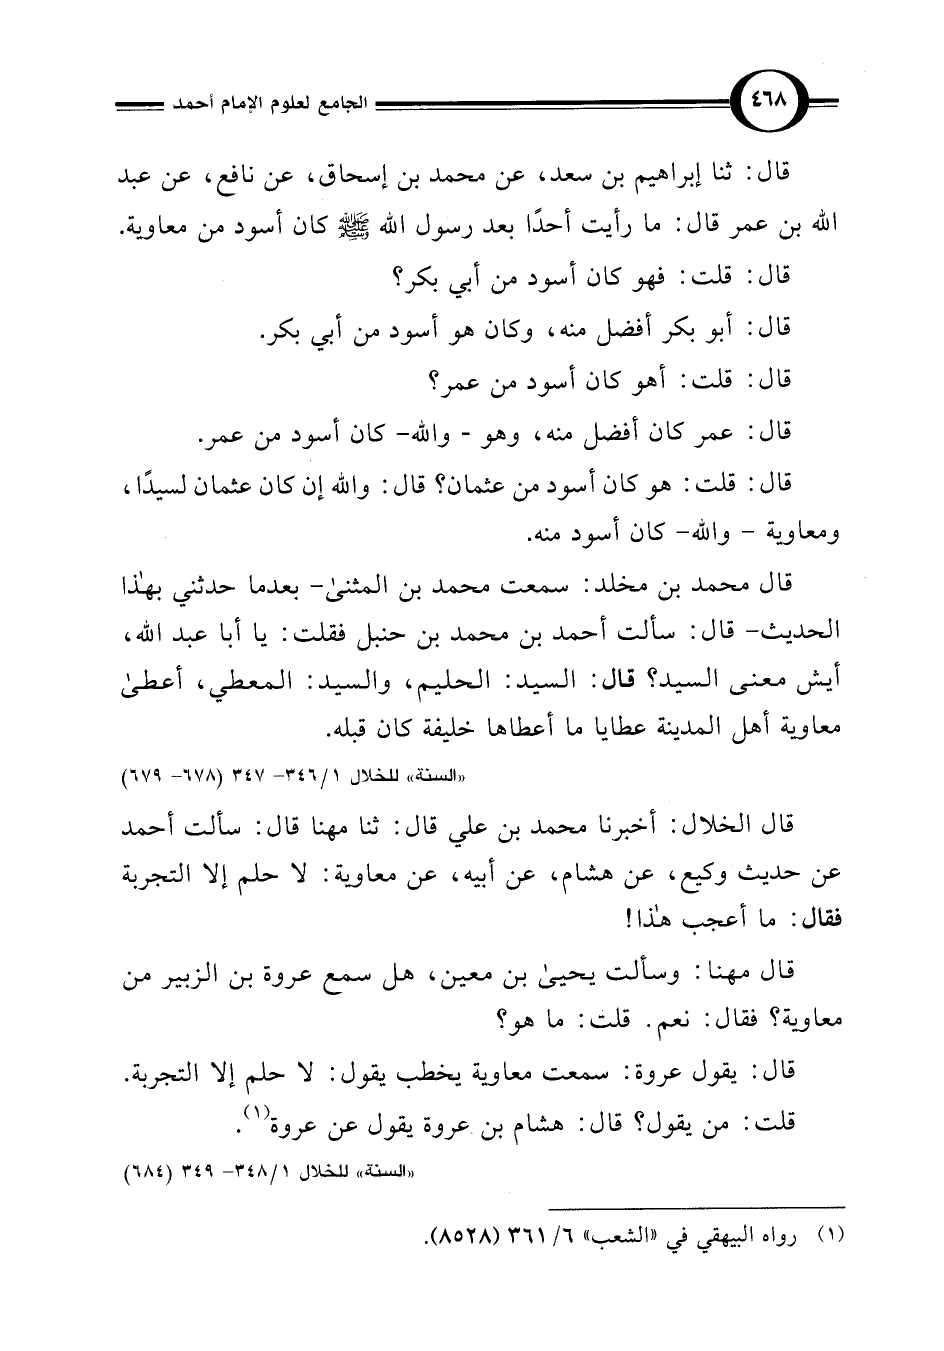 ٤٦٨ الجامع لعلوم الإمام أحمد
قال: ثنا إبراهيم بن سعد، عن محمد بن إسحاق، عن نافع، عن عبد
الله بن عمر قال: ما رأيت أحدًا بعد رسول الله ﷺ كان أسود من معاوية.
قال: قلت: فهو كان أسود من أبي بكر؟
قال: أبو بكر أفضل منه، وكان هو أسود من أبي بكر.
قال: قلت: أهو كان أسود من عمر؟
قال: عمر كان أفضل منه، وهو - والله- كان أسود من عمر.
قال: قلت: هو كان أسود من عثمان؟ قال: والله إن كان عثمان لسيدًا،
ومعاوية - والله- كان أسود منه.
قال محمد بن مخلد: سمعت محمد بن المثنىٰ- بعدما حدثني بهٰذا
الحديث- قال: سألت أحمد بن محمد بن حنبل فقلت: يا أبا عبد الله،
أيش معنى السيد؟ قال: السيد: الحليم، والسيد: المعطي، أعطىٰ
معاوية أهل المدينة عطايا ما أعطاها خليفة كان قبله.
«السنة» للخلال ١/ ٣٤٦- ٣٤٧ (٦٧٨- ٦٧٩)
قال الخلال: أخبرنا محمد بن علي قال: ثنا مهنا قال: سألت أحمد
عن حديث وكيع، عن هشام، عن أبيه، عن معاوية: لا حلم إلا التجربة
فقال: ما أعجب هٰذا!
قال مهنا: وسألت يحيىٰ بن معين، هل سمع عروة بن الزبير من
معاوية؟ فقال: نعم. قلت: ما هو؟
قال: يقول عروة: سمعت معاوية يخطب يقول: لا حلم إلا التجربة.
قلت: من يقول؟ قال: هشام بن عروة يقول عن عروة(١).
«السنة» للخلال ١/ ٣٤٨- ٣٤٩ (٦٨٤)
(١) رواه البيهقي في «الشعب» ٦/ ٣٦١ (٨٥٢٨).